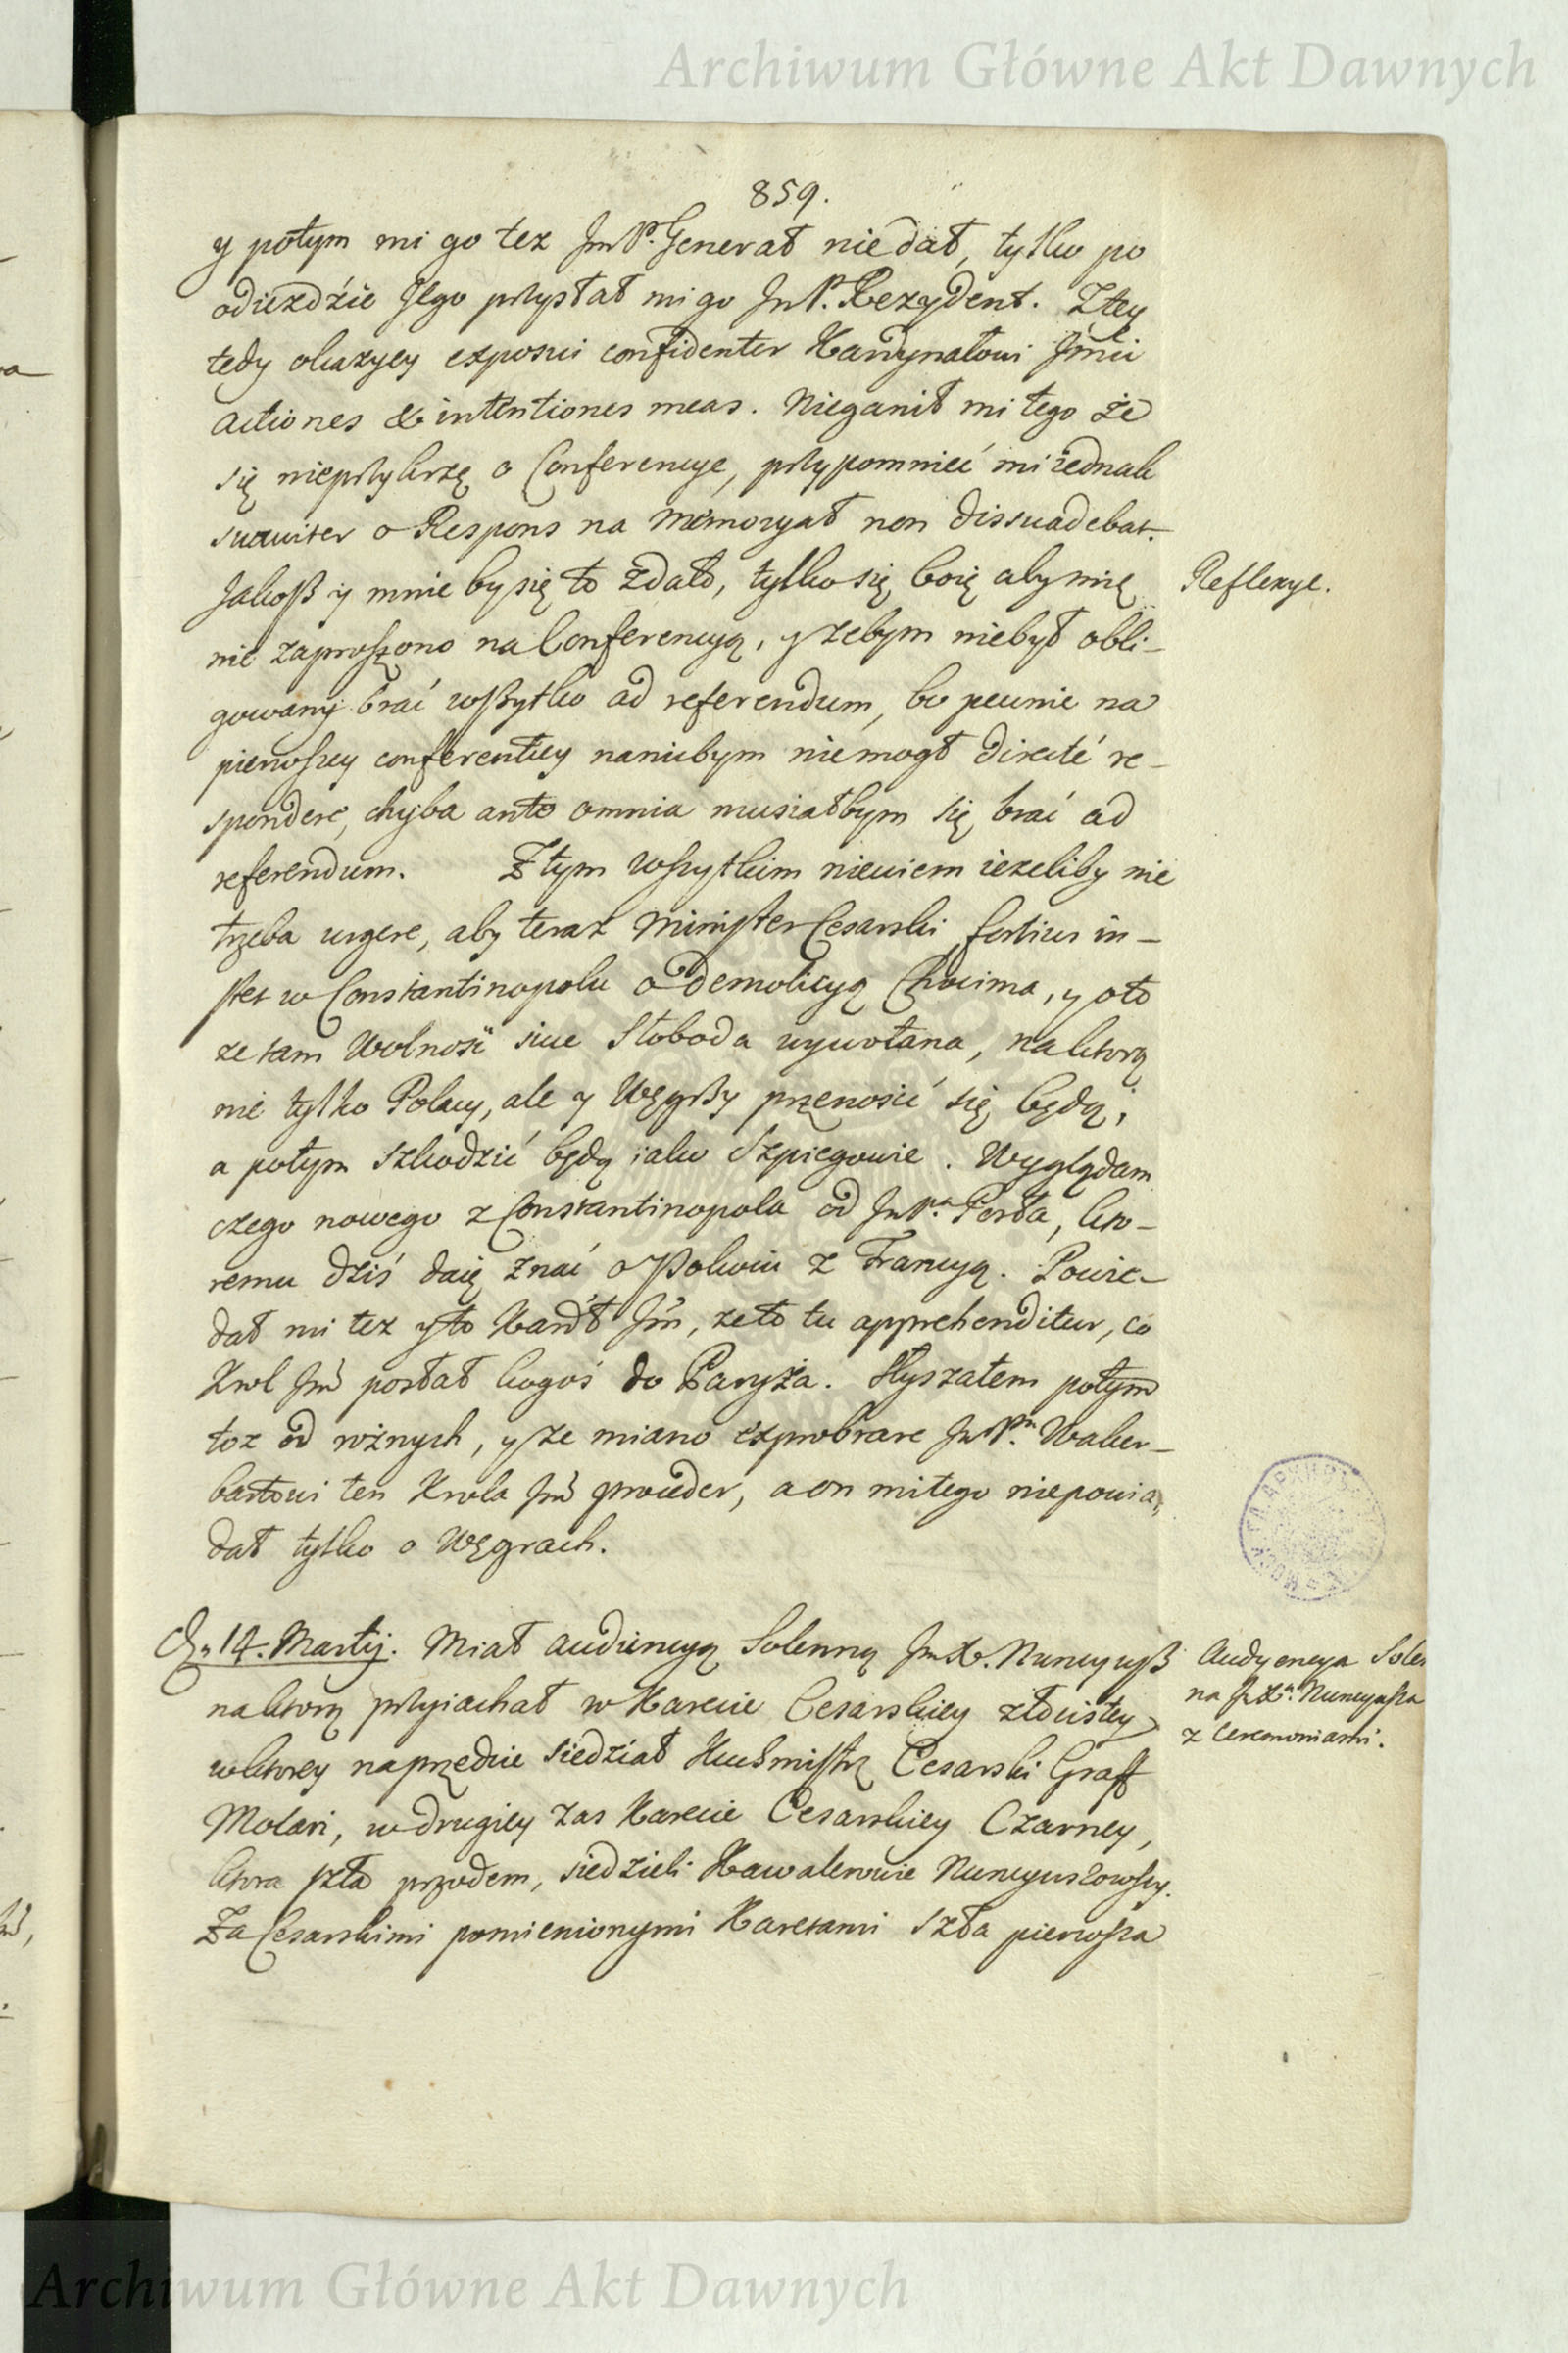 Archiwum Główne Akt Dawnych
859.
y potym mi go tez JmP. Generał nie dał, tylko po
odiezdzie Jego przysłał mi go JnP. Rezydent. Z tey
tedy okazyey exposui confidenter Kardynałowi Jmci
actiones & intentiones meas. Nieganił mi tego że
się nieprzykrzę o Conferencye, przypomnieć mi iednak
suawiter o Respons na Memoryał non dissuadebat.
Jakoß y mnie by się to zdało, tylko się boię aby mię
Reflexye.
nie zaproszono na Conferencyą, y zebym niebył obli-
gowany brać wßytko ad referendum, bo pewnie na
pierwszey conferentiey naniebym niemogł directé re-
spondere, chyba ante omnia musiałbym się brać ad
referendum. Z tym wszytkim niewiem iezeliby nie
trzeba urgere, aby teraz Minister Cesarski fortius in-
stet w Constantinopolu o demolicyą Chocima, y oto
ze tam Wolność siue Słoboda wywołana, na ktorą
nie tylko Polacy, ale y Węgrßy przenosić się będą,
a potym szkodzić będą iako Szpiegowie. Wyglądam
czego nowego z Constantinopola od JnPa. Perła, kto-
remu dziś daię znać o Pokoiu z Francyą. Powie-
dał mi tez y to Kardł Jm, ze to tu apprehenditur, co
Krol Jm posłał kogoś do Paryża. Słyszałem potym
toz od rożnych, y ze miano exprobrare JnPn. Waker-
bartowi ten Krola Jm proceder, a on mi tego niepowia-
dał tylko o Węgrach.
Dn 14. Martij. Miał audiencyą Solenną JmX. Nuncyuß
Audyencya Solen
na JnXa. Nuncyusza
z Ceremoniami.
na ktorą przyiachał w Karecie Cesarskiey złocistey
w ktorey naprzedzie siedział Kuchmistrz Cesarski Graff
Molari, w drugiey zas Karecie Cesarskiey Czarney,
ktora szła przodem, siedzieli Kawalerowie Nuncyuszowscy.
Za Cesarskimi pomienionymi Karetami szła pierwsza
Archiwum Główne Akt Dawnych